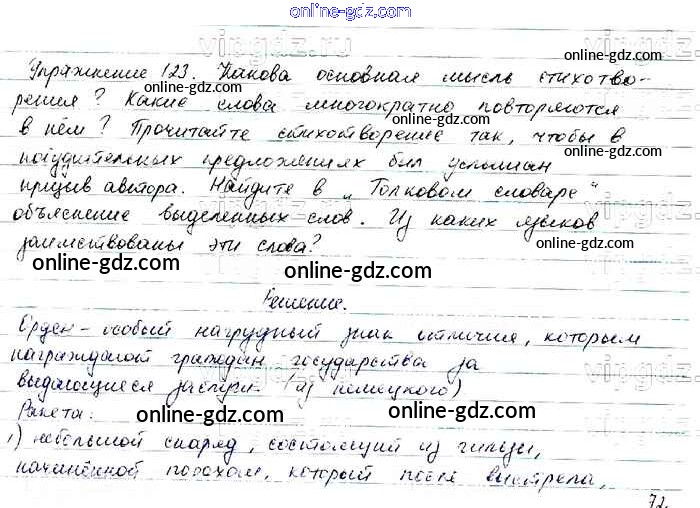 online-gdz.com
vipgdz.ru
Упражнение 123. Какова основная мысль стихотво-
рения? Какие слова многократно повторяются
в нём? Прочитайте стихотворение так, чтобы в
побудительных предложениях был услышан
призыв автора. Найдите в „Толковом словаре"
объяснение выделенных слов. Из каких языков
заимствованы эти слова?
online-gdz.com
online-gdz.com
online-gdz.com
online-gdz.com
online-gdz.com
online-gdz.com
Решение.
Орден – особый нагрудный знак отличия, которым
награждают граждан государства за
выдающиеся заслуги. (из немецкого)
Ракета:
1) небольшой снаряд, состоящий из гильзы,
начинённой порохом, который после выстрела,
online-gdz.com
online-gdz.com
online-gdz.com
online-gdz.com
online-gdz.com
72.